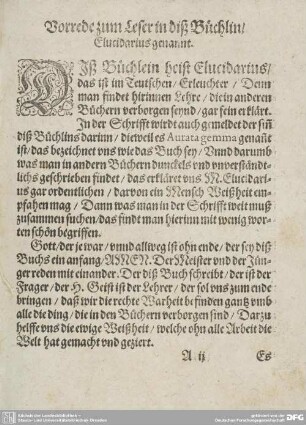 Vorrede zum Leser in diß Büchlin/
Elucidarius genannt.
DIß Büchlein heist Elucidarius/
das ist im Teutschen/ Erleuchter / Denn
man findet hirinnen Lehre/ die in anderen
Büchern verborgen seynd/ gar fein erklärt.
In der Schrifft wirdt auch gemeldet der siñ
diß Büchlins darinn/ dieweil es Aurata gemma genañt
ist/ das bezeichnet vns wie das Buch sey / Vnnd darumb
was man in andern Büchern dunckels vnd vnverständt-
lichs geschrieben findet / das erkläret vns M. Elucidari-
us gar ordentlichen / darvon ein Mensch Weißheit em-
pfahen mag / Dann was man in der Schrifft weit muß
zusammen suchen/ das findt man hierinn mit wenig wor-
ten schön begriffen.
Gott/ der je war / vnnd allweg ist ohn ende/ der sey diß
Buchs ein anfang/ AMEN. Der Meister vnd der Jün-
ger reden mit einander. Der diß Buch schreibt / der ist der
Frager / der H. Geist ist der Lehrer / der sol vns zum ende
bringen / daß wir die rechte Warheit befinden gantz vmb
alle die ding / die in den Büchern verborgen sind / Darzu
helffe vns die ewige Weißheit / welche ohn alle Arbeit die
Welt hat gemacht vnd geziert.
A ij Es
Sächsische Landesbibliothek –
Staats- und Universitätsbibliothek Dresden
Gefördert von der
Deutschen Forschungsgemeinschaft
DFG